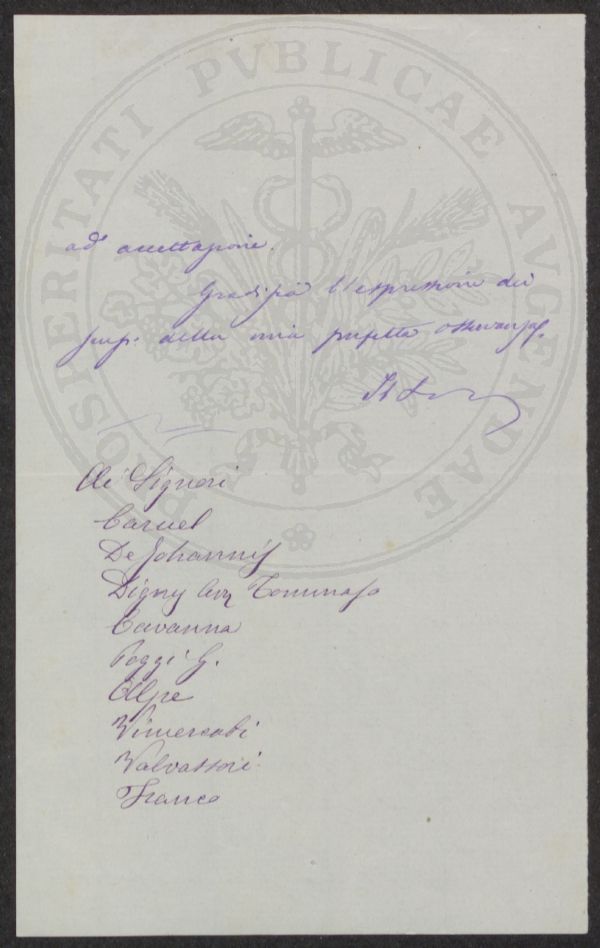 PROSPERITATI PVBLICAE AVGENDAE
ad accettazione.
Gradisca l'espressione dei
della mia perfetta osservanza.
Ai Signori
Caruel
De Johannis
Digny Cav Tommaso
Cavanna
Poggi G.
Alpe
Vimercati
Valvassori
Franco